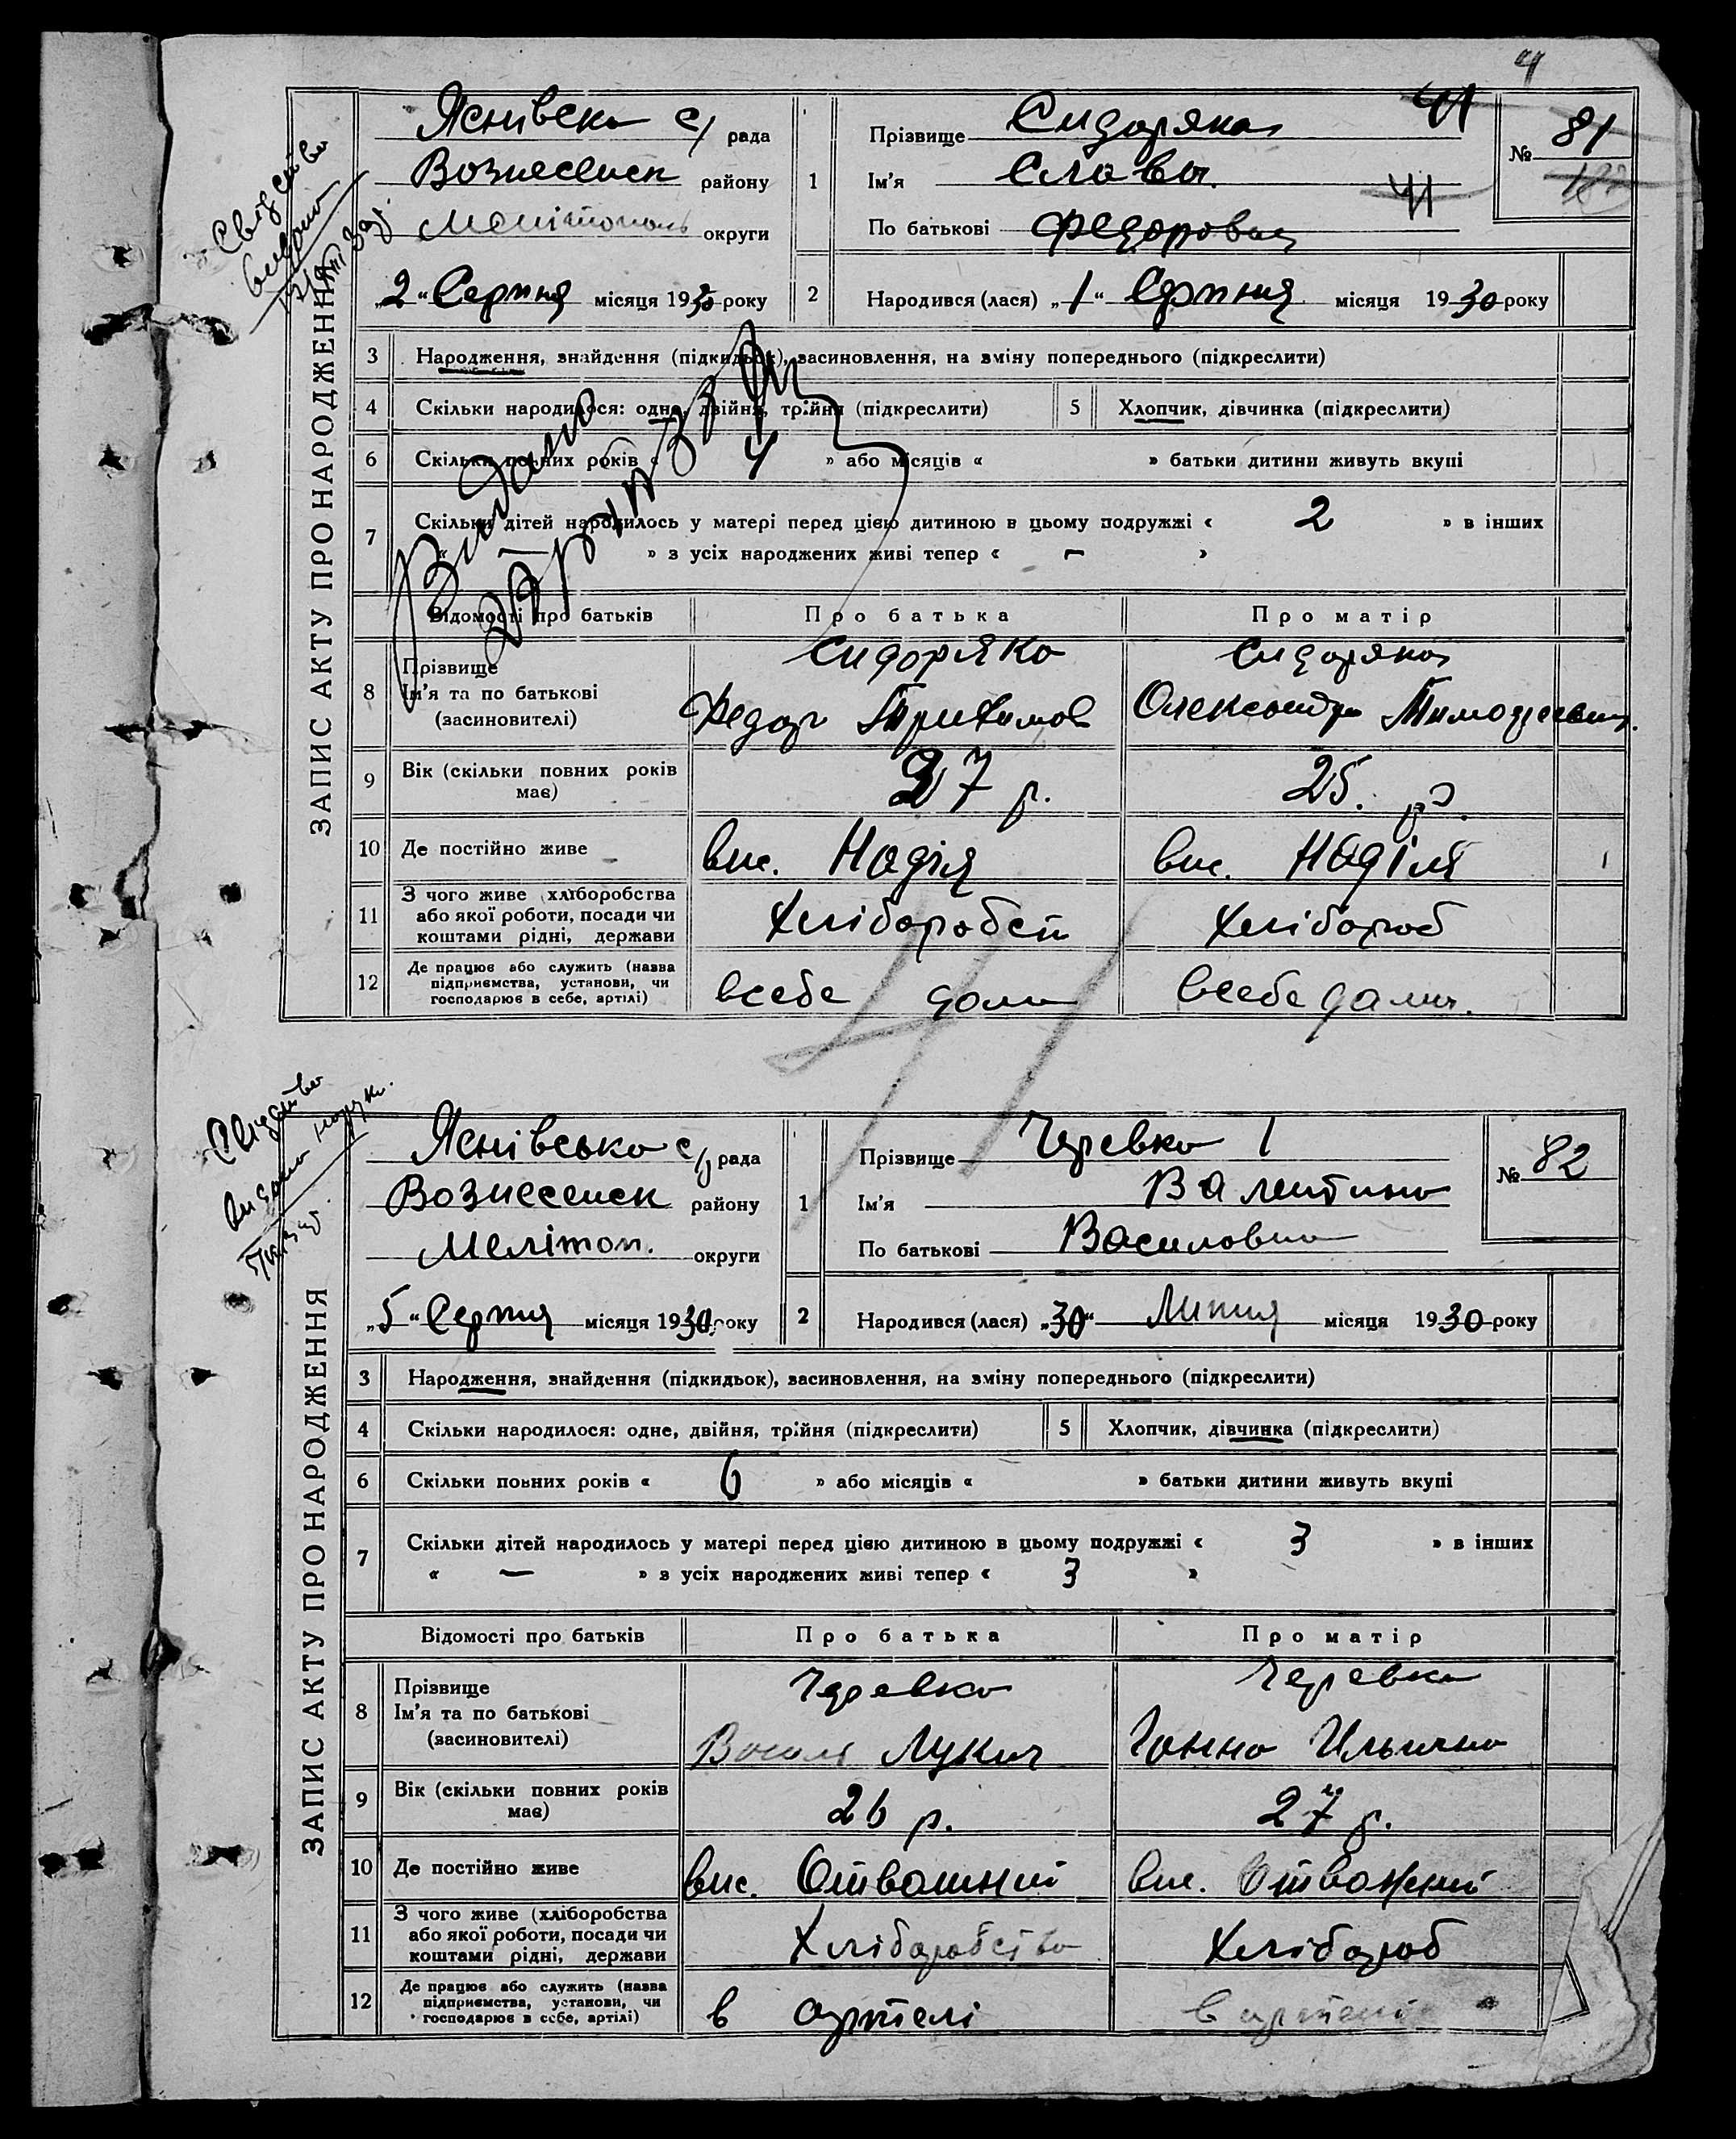 41
ЗАПИС АКТУ ПРО НАРОДЖЕННЯ
Свідоцтво
видано
Яснівска с/рада
Вознесенск району
Мелітополь округи
„2“ Серпня місяця 1930 року
1
Прізвище Сидоряка 41
Ім'я Слава 41
По батькові Федорович
№ 81
2 Народився (лася) „1“ Серпня місяця 1930 року
3 Народження, знайдення (підкидьок), засиновлення, на зміну попереднього (підкреслити)
4 Скільки народилося: одне, двійня, трійня (підкреслити) 5 Хлопчик, дівчинка (підкреслити)
6 Скільки повних років « 4 » або місяців « » батьки дитини живуть вкупі
7 Скільки дітей народилось у матері перед цією дитиною в цьому подружжі « 2 » в інших
« — » з усіх народжених живі тепер « - »
Видано
Відомості про батьків Про батька Про матір
8 Прізвище
Ім'я та по батькові
(засиновителі)
Сидоряко
Федор Трихимов
Сидоряка
Олександра
9 Вік (скільки повних років має) 27 р. 25. р.
10 Де постійно живе вис. Надія вис. Надія
11 З чого живе (хліборобства
або якої роботи, посади чи
коштами рідні, держави
Хліборобст Хлібороб
12 Де працює або служить (назва
підприємства, установи, чи
господарює в себе, артілі)
всебе дома всебе дома.
41
ЗАПИС АКТУ ПРО НАРОДЖЕННЯ
Свідоцтво
видано на руки.
Яснівська с/рада
Вознесенск району
Меліτοп. округи
„5“ Серпня місяця 1930 року
1
Прізвище Черевко
Ім'я Валентина
По батькові Василовна
№ 82
2 Народився (лася) „30“ Липня місяця 1930 року
3 Народження, знайдення (підкидьок), засиновлення, на зміну попереднього (підкреслити)
4 Скільки народилося: одне, двійня, трійня (підкреслити) 5 Хлопчик, дівчинка (підкреслити)
6 Скільки повних років « 6 » або місяців « » батьки дитини живуть вкупі
7 Скільки дітей народилось у матері перед цією дитиною в цьому подружжі « 3 » в інших
« — » з усіх народжених живі тепер « 3 »
Відомості про батьків Про батька Про матір
8 Прізвище
Ім'я та по батькові
(засиновителі)
Черевко
Василь Лукич
Черевко
Ганна Ильична
9 Вік (скільки повних років має) 26 р. 27 р.
10 Де постійно живе вис. Отважний вис. Отважний
11 З чого живе (хліборобства
або якої роботи, посади чи
коштами рідні, держави
Хліборобство Хлібороб
12 Де працює або служить (назва
підприємства, установи, чи
господарює в себе, артілі)
в артелі в артелі